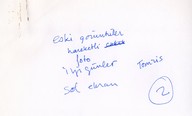 Eski görüntüler
hareketli
foto
iyi günler
Tomris
Sol ekran
2